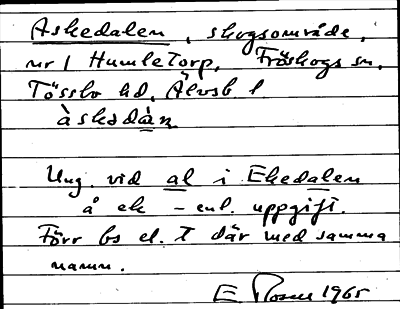 Askedalen, skogsområde,
nr 1 Humletorp, Fröskogs sn,
Tössbo hd, Älvsb. l
àskədàn
Ung. vid al i Ekedalen
å ek – enl. uppgift.
Förr bs el. t där med samma
namn.
E 1965